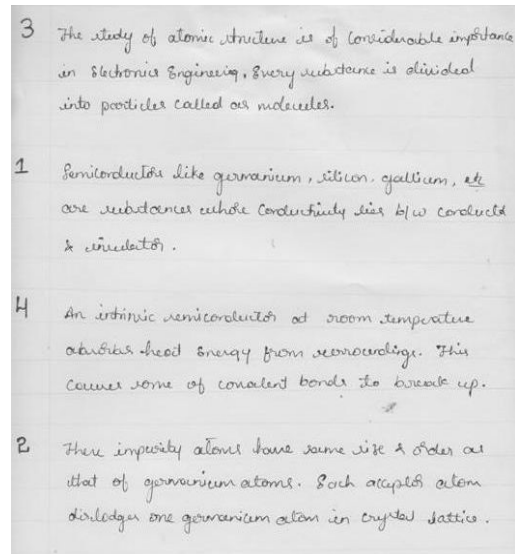 3 The study of atomic structure is of considerable importance
in Electronics Engineering, Every substance is divided
into particles called as molecules.
1 Semiconductors like germanium, silicon. gallium, etc
are substances whose conductivity lies b/w conductor
& insulator.
4 An intrinsic semiconductor at room temperature
absorbs heat Energy from surroundings. This
causes some of convalent bonds to break up.
2 These impurity atoms have same size & order as
that of germanium atoms. Each acceptor atom
dislodges one germanium atom in crystal lattice.